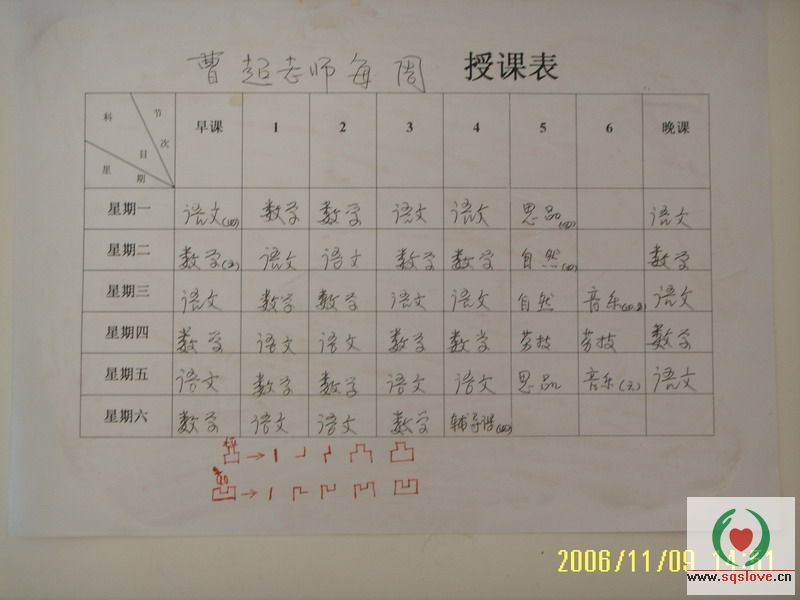 曹超老师每周 授课表
科 节
目 次
星 期
早课 1 2 3 4 5 6 晚课
星期一 语文(四) 数学 数学 语文 语文 思品(四) 语文
星期二 数学(五) 语文 语文 数学 数学 自然(四) 数学
星期三 语文 数学 数学 语文 语文 自然 音乐 语文
星期四 数学 语文 语文 数学 数学 劳技 劳技 数学
星期五 语文 数学 数学 语文 语文 思品 音乐(五) 语文
星期六 数学 语文 语文 数学 辅导课(四)
2006/11/09 14:01
www.sqslove.cn